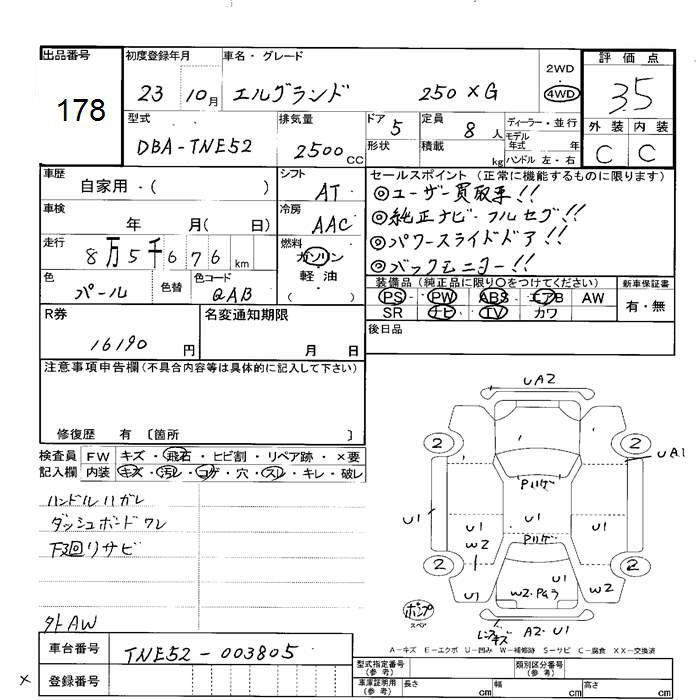 出品番号
178
初度登録年月
23 10月
車名・グレード
エルグランド 250 XG
2WD
4WD
評価点
3.5
外装 内装
C C
型式
DBA-TNE52
排気量
2500CC
ドア 5
形状
定員 8人
積載 kg
ディーラー・並行
モデル
年式 年
ハンドル 左・右
車歴
自家用・( )
シフト
AT
セールスポイント (正常に機能するものに限ります)
◎ユーザー買取車!!
◎純正ナビ・フルセグ!!
◎パワースライドドア!!
◎バックモニター!!
車検
年 月(日)
冷房
AAC
走行
8万5千676km
燃料
ガソリン
軽油
( )
色
パール
色替
色コード
QAB
装備品(純正品に限り○をつけてください)
PS・ PW ABS・エアB AW
SR ナビ・ TV カワ
新車保証書
有・無
R券
16190円
名変通知期限
月 日
後日品
注意事項申告欄(不具合内容等は具体的に記入して下さい)
修復歴 有 〔箇所 〕
検査員
記入欄
FW キズ・飛石・ヒビ割・リペア跡・×要
内装 キズ・汚レ・コゲ・穴・スレ・キレ・破レ
ハンドルハガレ
ダッシュボードワレ
下回リサビ
外AW
UA2
2
2
UA1
Pハゲ
U1
U1
U1
U1
W2
Pハゲ
2
2
U1
U1
W2
W2・Pムラ
ポンプ
スペア
レンズキズ
A2・U1
A-キズ E-エクボ U-凹み W-補修跡 S-サビ C-腐食 XX-交換済
車台番号
TNE52-003805
×
登録番号
型式指定番号
(参考)
類別区分番号
(参考)
車庫証明用
(参考)
長さ cm
幅 cm
高さ cm